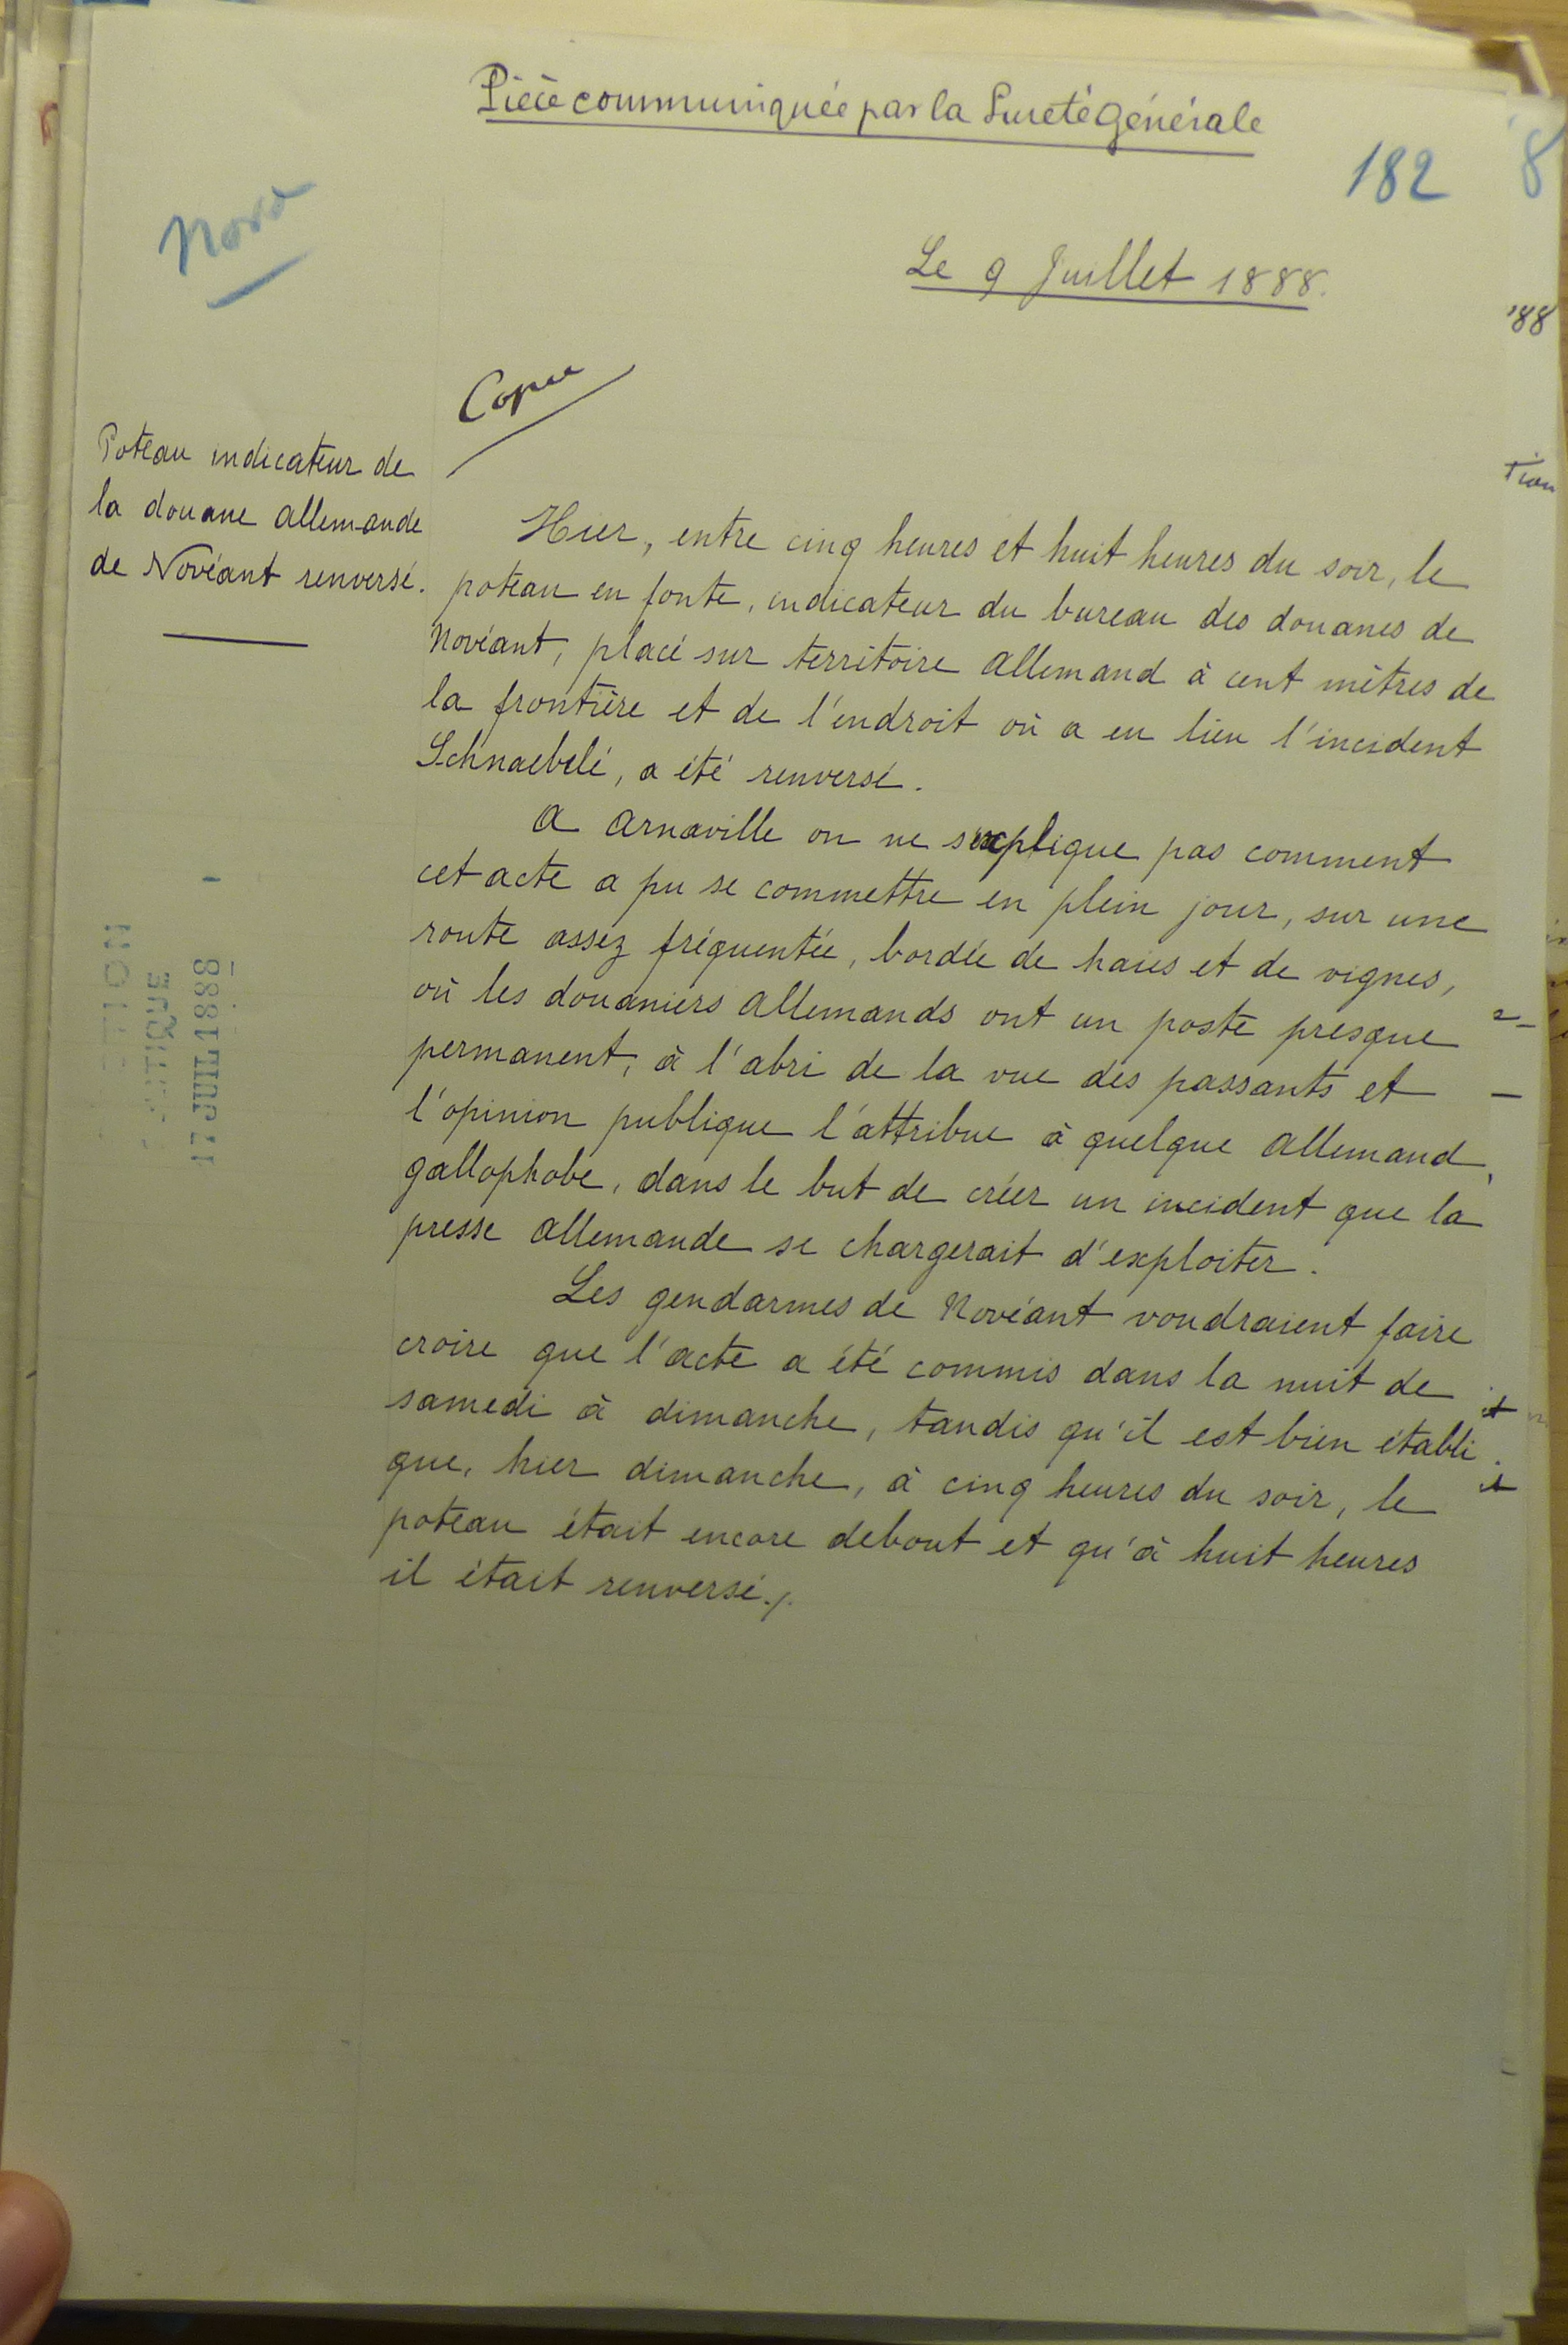 Pièce communiquée par la Sureté Générale
182
8
Nord
Le 9 Juillet 1888.
'88
Copie
Poteau indicateur de
la douane allemande
de Novéant renversé.
Hier, entre cinq heures et huit heures du soir, le
poteau en fonte, indicateur du bureau des douanes de
Novéant, placé sur territoire allemand à cent mètres de
la frontière et de l'endroit où a eu lieu l'incident
Schnaebelé, a été renversé.
A Arnaville on ne s'explique pas comment
cet acte a pu se commettre en plein jour, sur une
route assez fréquentée, bordée de haies et de vignes,
où les douaniers allemands ont un poste presque
permanent, à l'abri de la vue des passants et
l'opinion publique l'attribue à quelque allemand
gallophobe, dans le but de créer un incident que la
presse allemande se chargerait d'exploiter.
Les gendarmes de Novéant voudraient faire
croire que l'acte a été commis dans la nuit de
samedi à dimanche, tandis qu'il est bien établi
que, hier dimanche, à cinq heures du soir, le
poteau était encore debout et qu'à huit heures
il était renversé./.
17 JUIL 1888